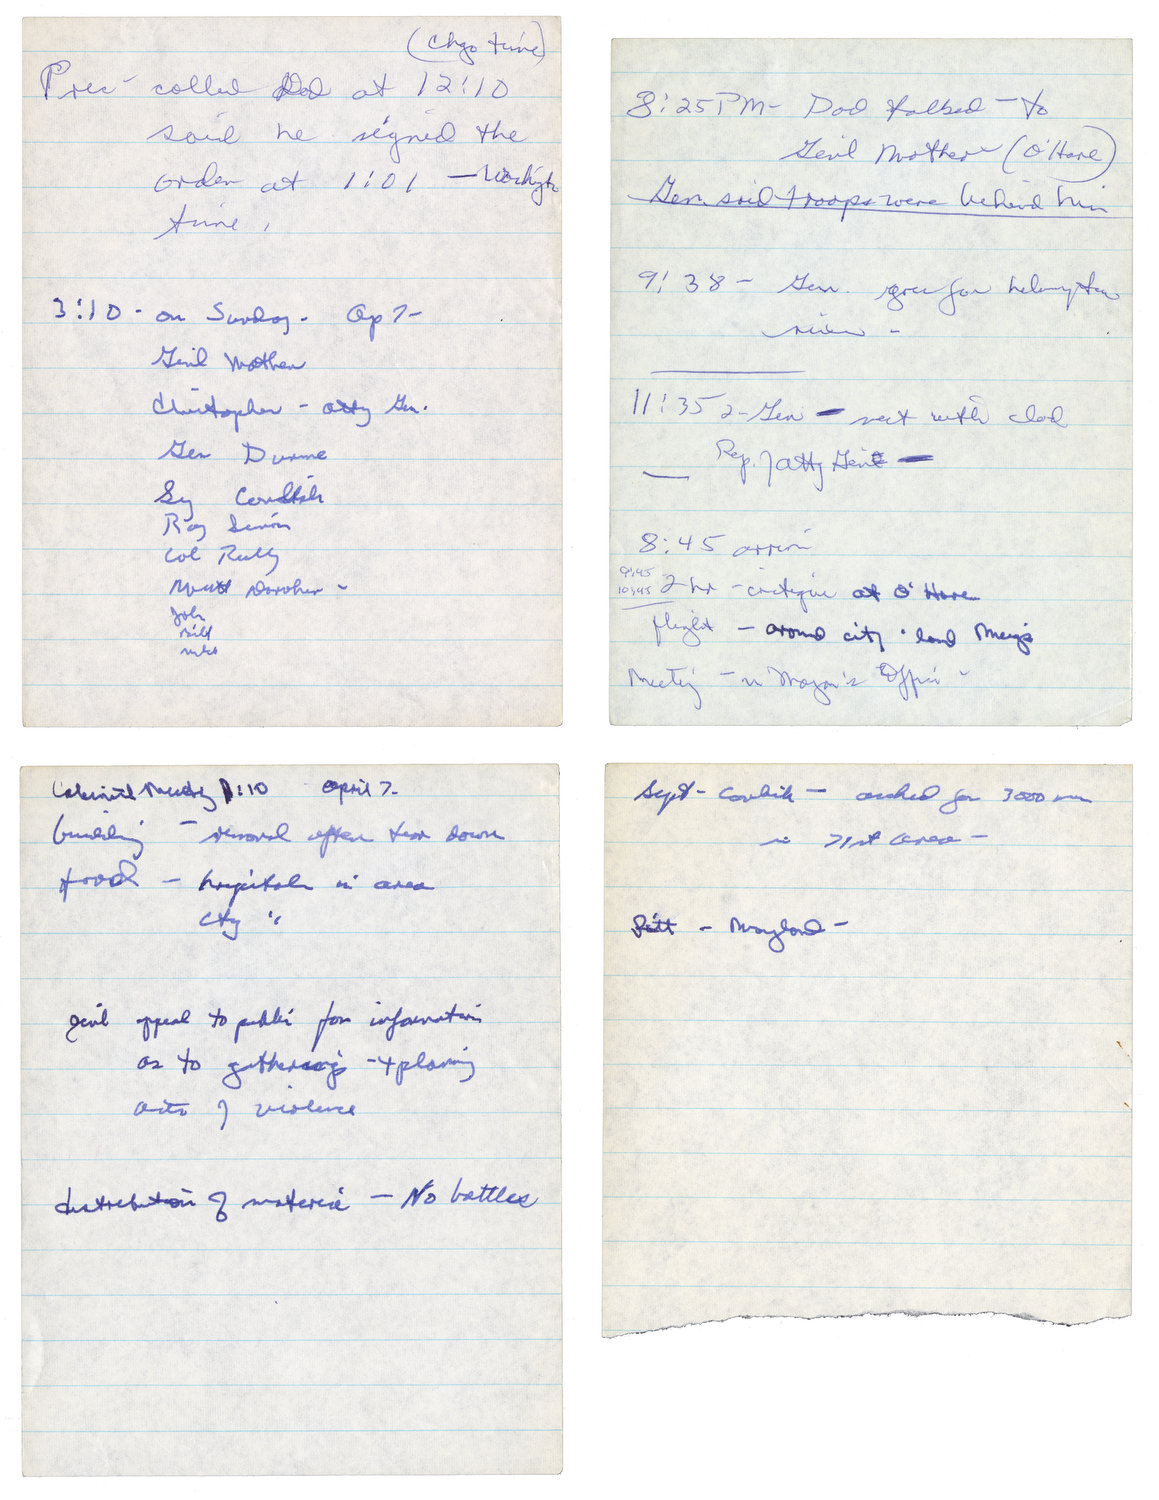 (Chgo time)
Pres - called Dad at 12:10
said he signed the
order at 1:01 -
time.
3:10 - on Sunday. Ap 7-
Genl Mather
Christopher - atty Gen.
Gen Dunne
Sy
Ray Simon
Col
Matt Danaher -
John
Bill
Mike
8:25 PM - Dad talked - to
Genl Mather (O'Hare)
Gen. said troops were behind him
9:38 - Gen. for
11:35 2 - Gen - met with dad
Rep. Atty Genl -
8:45 arrive
9:45
10:45 2 hr - critique at O'Hare
flight - around city - land Meigs
Meeting - in Mayor's Office -
Cabinet Meeting 1:10 April 7-
building - removal after tear down
food - hospitals in area
Cty "
genl appeal to public for information
as to gatherings - + planning
acts of violence
distribution of material - No bottles
Supt - Conlisk - asked for 3000 men
in 71st area -
- Maryland -